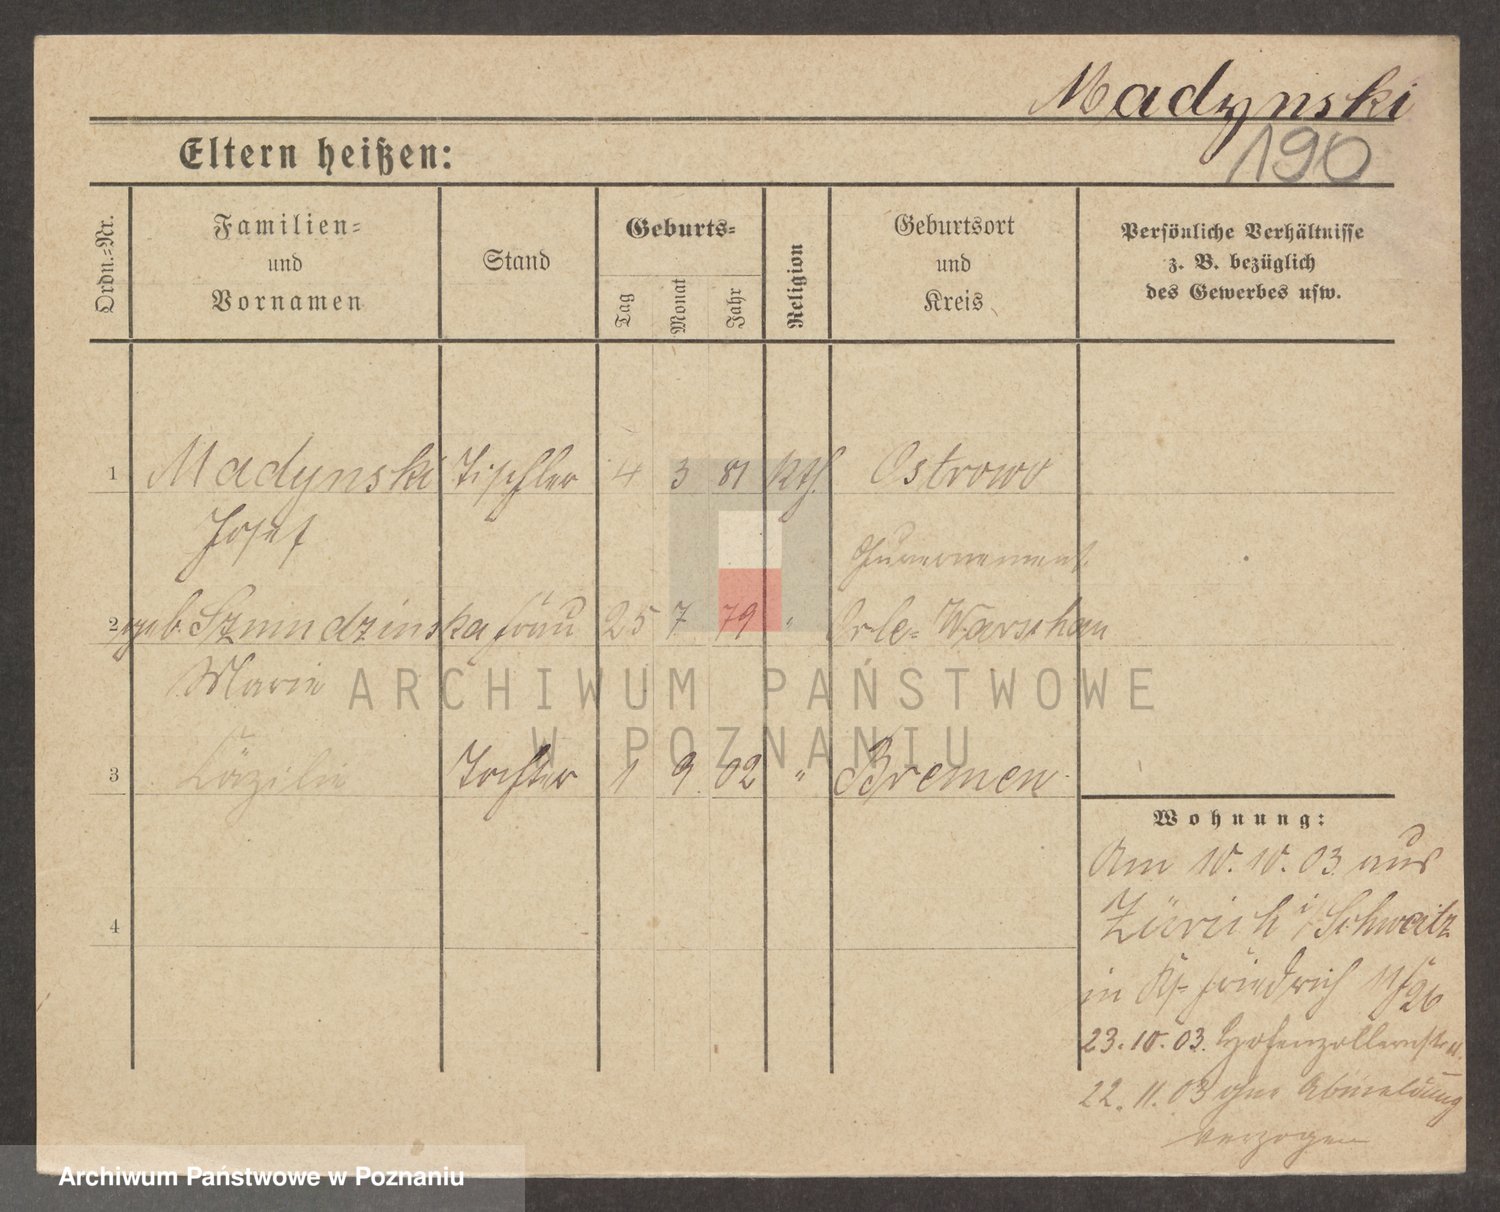 Madynski
190
Eltern heißen:
Ordn.-Nr.
Familien-
und
Vornamen
Stand
Geburts-
Tag
Monat
Jahr
Religion
Geburtsort
und
Kreis
Persönliche Verhältnisse
z. B. bezüglich
des Gewerbes usw.
1 Madynski Tischler 4 3 81 Kth. Ostrowo
Josef
Guvernement
2 geb. Szmudzinska Frau 25 7 79 " Warschau
Marie
3 Cäzilie Tochter 1 9 02 " Bremen
4
Wohnung:
Am 10.10.03 aus
Zürich i/ Schweitz
in Friedrich
23.10.03. Hohenzollernstr
22.11.03 ohne Abmeldung
verzogen
ARCHIWUM PAŃSTWOWE
W POZNANIU
Archiwum Państwowe w Poznaniu